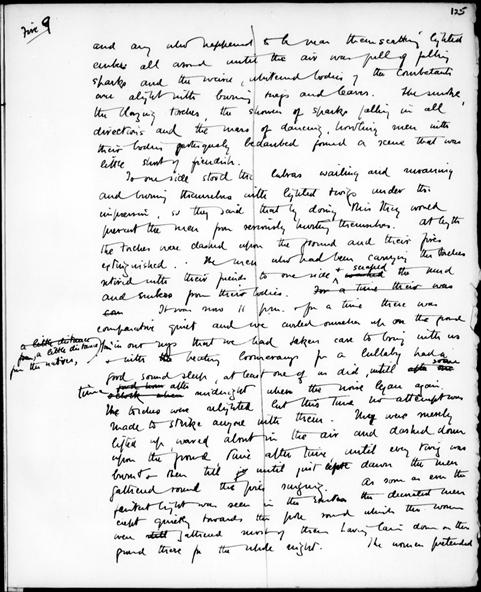 Fire 9
125
and any who happened to be near them scattering lighted
embers all around until the air was full of falling
sparks and the weird whitened bodies of the combatants
were alight with burning twigs and leaves. The smoke,
the blazing torches, the showers of sparks falling in all
directions and the mass of dancing, howling men with
their bodies grotesquely bedaubed formed a scene that was
little short of fiendish.
To one side stood the lubras wailing and moaning
and burning themselves with lighted twigs under the
impression, so they said that by doing this they would
prevent the men from seriously hurting themselves. At length
the torches were dashed upon the ground and their fires
extinguished. The men who had been carrying the torches
retired with their friends to one side & scraped the mud
and smoke from their bodies. For a time there was
It was now 11 p.m. & for a time there was
comparative quiet and we curled ourselves up on the ground
a little distance
from the natives,
in our rugs that we had taken care to bring with us
& with the beating boomerangs for a lullaby had a
good sound sleep, at least one of us did, until some
time after midnight when the noise began again.
The torches were relighted but this time no attempt was
made to strike anyone with them. They were merely
lighted up waved about in the air and dashed down
upon the ground time after time, until every twig was
burnt & then till just before dawn the men
gathered round the fires singing. As soon as ever the
faintest light was seen in the the decorated men
crept quietly towards the pole round which the women
were gathered most of them having lain down on the
ground there for the whole night. The women pretended